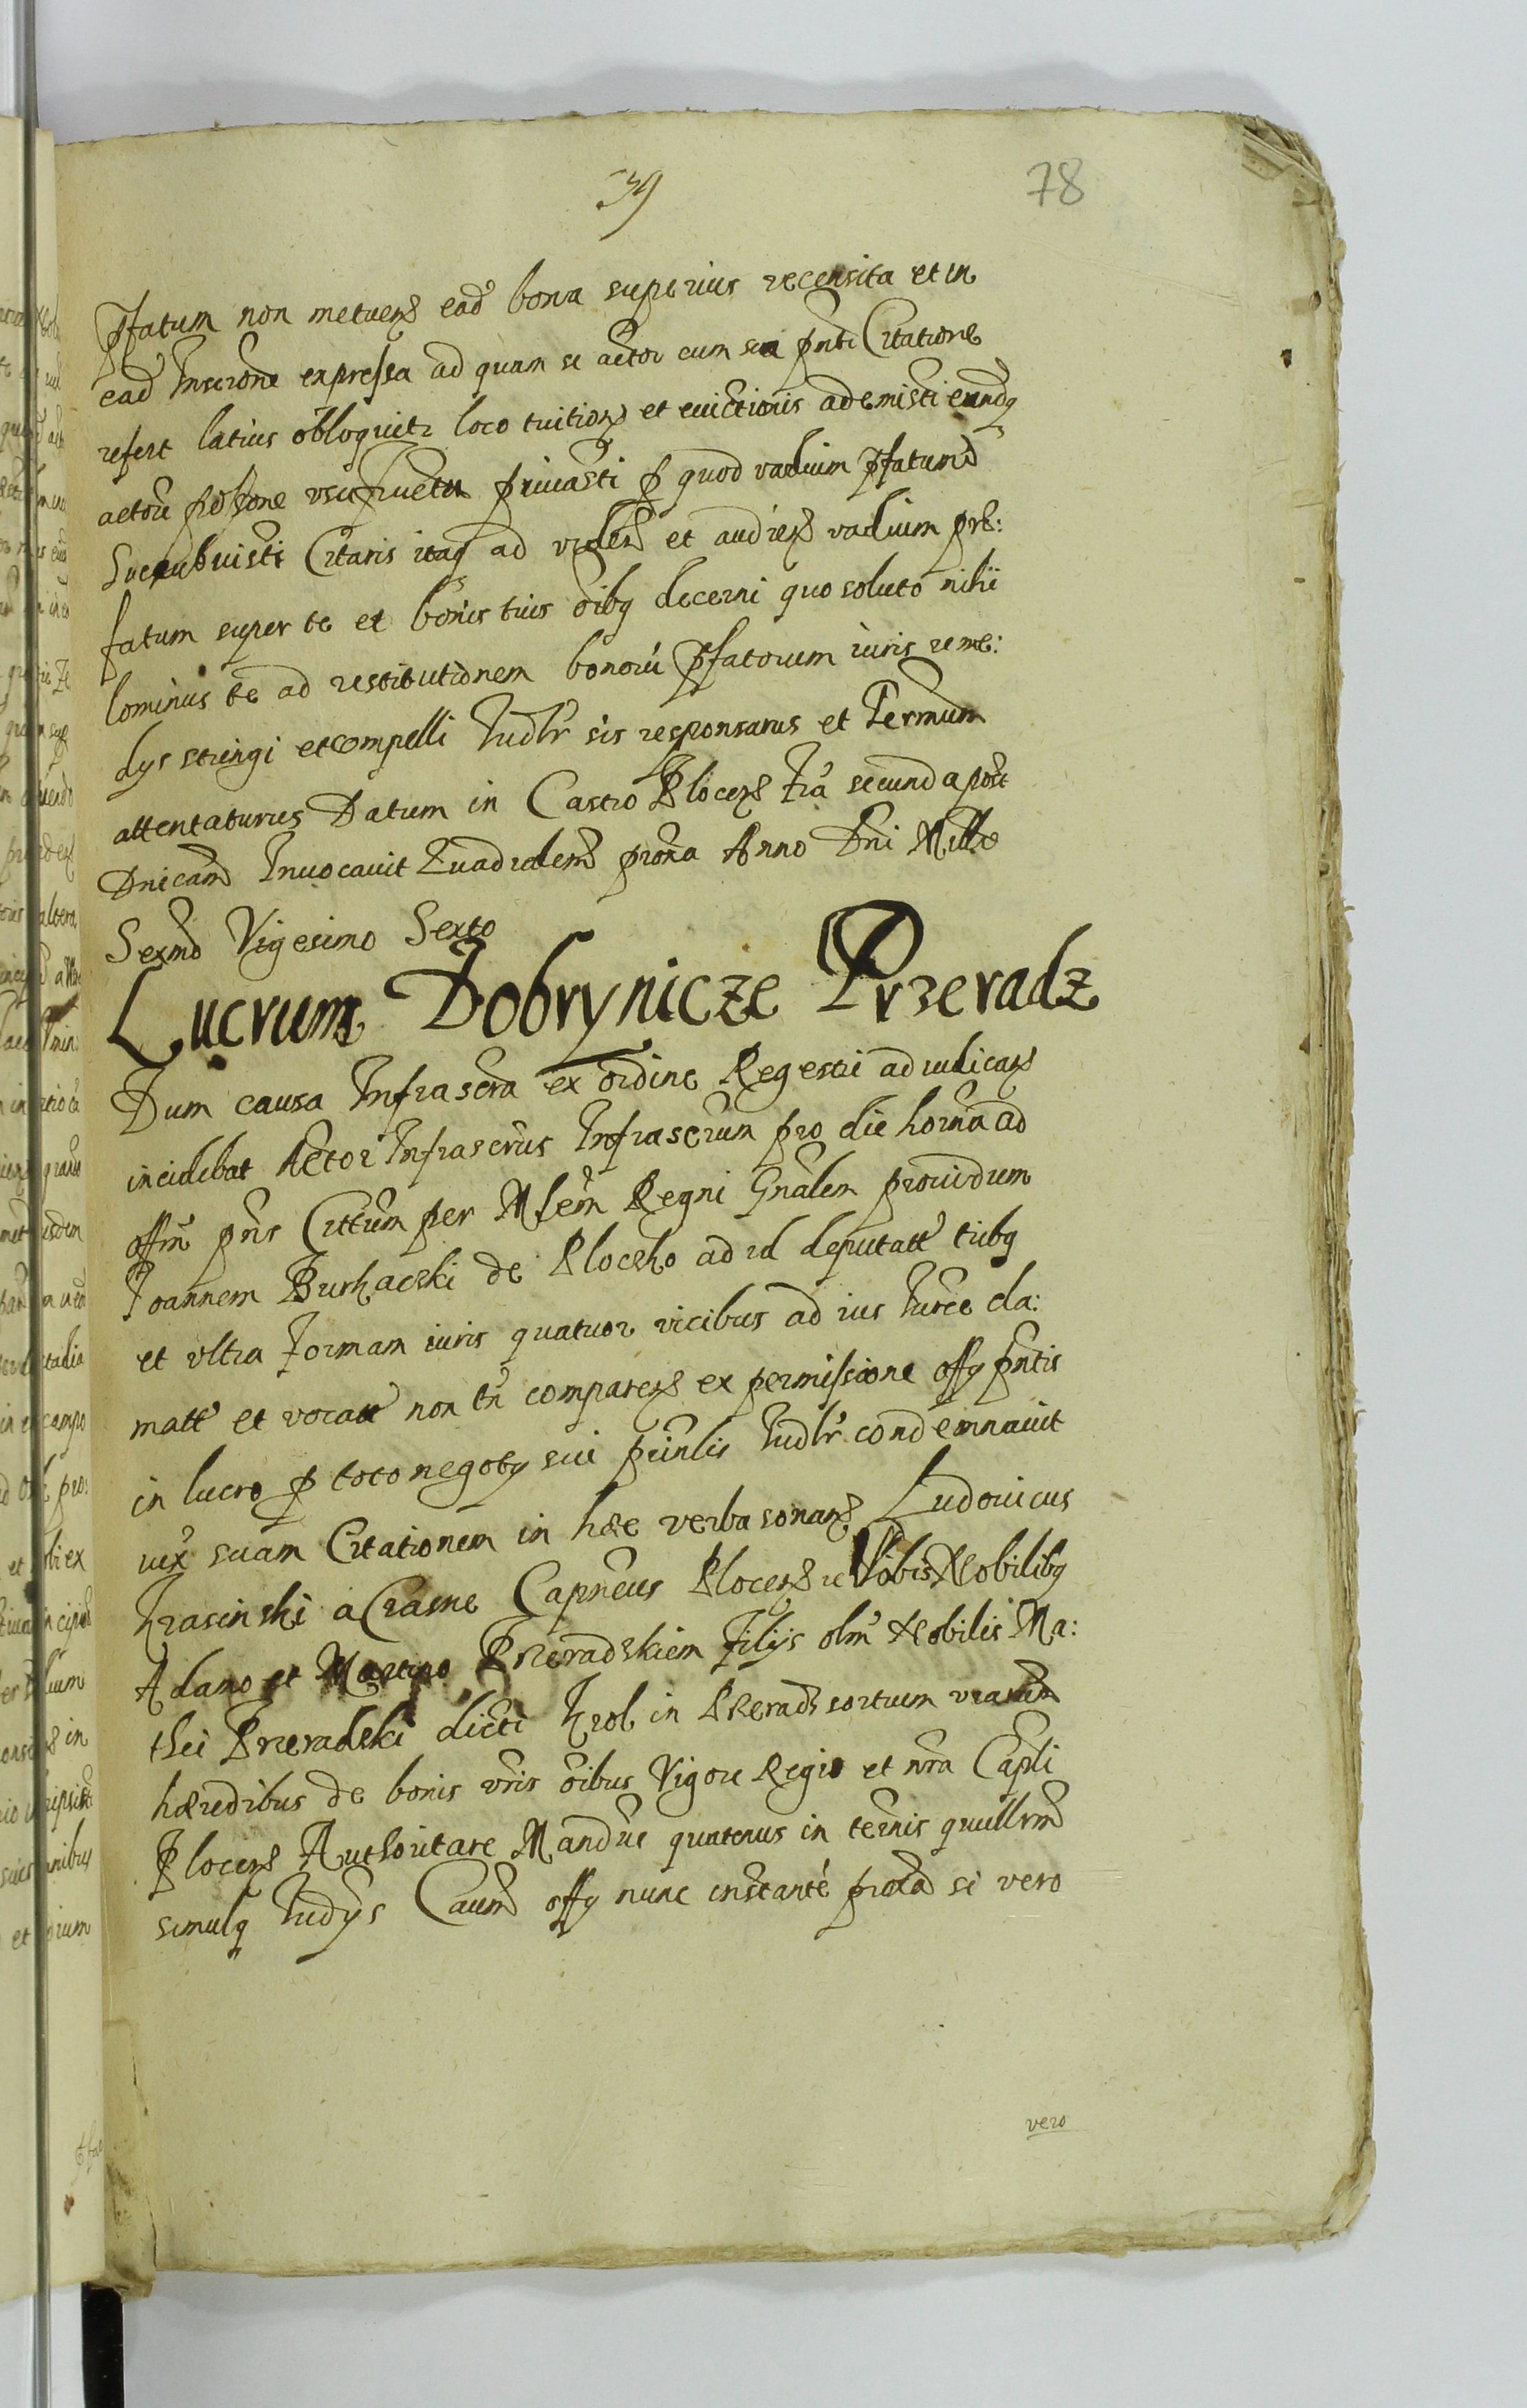 39
78
pfatum non metuens ead bona superius recensita et in
ead Inscrone expressa ad quam se actor cum sua pnti Citatione
refert latius obloquitr loco tuitions et euictionis ademisti eundq
actore possone usufructu priuasti p quod vadium pfatum
Succubuisti Citaris itaq ad videnđ et audienđ vadium præ:
fatum super te et bonis tuis oibq decerni quo soluto nihi
lominus te ad restitutionem bonoru pfatorum iuris reme:
dys stringi et compelli Iudlr sis responsurus et Termum
attentaturus Datum in Castro Plocens fra secunda post
Dnicam Inuocauit Quadrulem prona Anno Dni Mille
Sexmo Vigesimo Sexto
Lucrum Dobrynicze Przeradz
Dum causa Infrascra ex ordine Regestri adiudicans
incidebat Actor Infrascrus Infrascrum pro die horna ad
offm pns Cittum per Mlem Regni Gnalem prouidum
Joannem Burhacski de Plocsko ad id deputatt tribq
et vltra formam iuris quatuor vicibus ad ius Iurce cla:
matt et vocatt non tn comparens ex permissione offy pntis
in lucro p toto negoty sui prinlis Iudlr condemnauit
iux suam Citationem in hæc verba sonans Ludouicus
Krasinski a Crasne Capneus Plocens et Vobis Nobilibq
Adamo et Martino Przeradzkiem filijs olm Nobilis Ma:
thei Przeradzki dicti Krol in Przeradz sortium vrarum
hæredibus de bonis vris oibus Vigore Regio et nra Capli
Plocens Authoritate Mandue quatenus in ternis quullrm
simulq Iudys Caum offy nunc instante prona si vero
vero